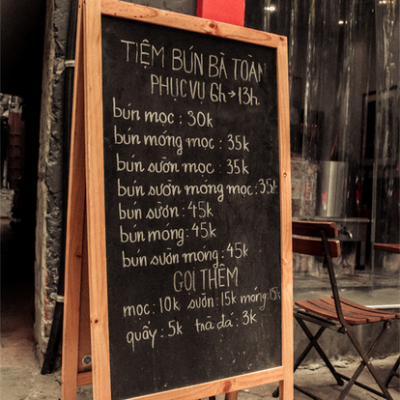 TIỆM BÚN BÀ TOÀN
PHỤC VỤ 6h → 13h
bún mọc : 30k
bún móng mọc : 35k
bún sườn mọc : 35k
bún sườn móng mọc : 35k
bún sườn : 45k
bún móng : 45k
bún sườn móng : 45k
GỌI THÊM
mọc : 10k sườn : 15k móng : 15k
quẩy : 5k trà đá : 3k